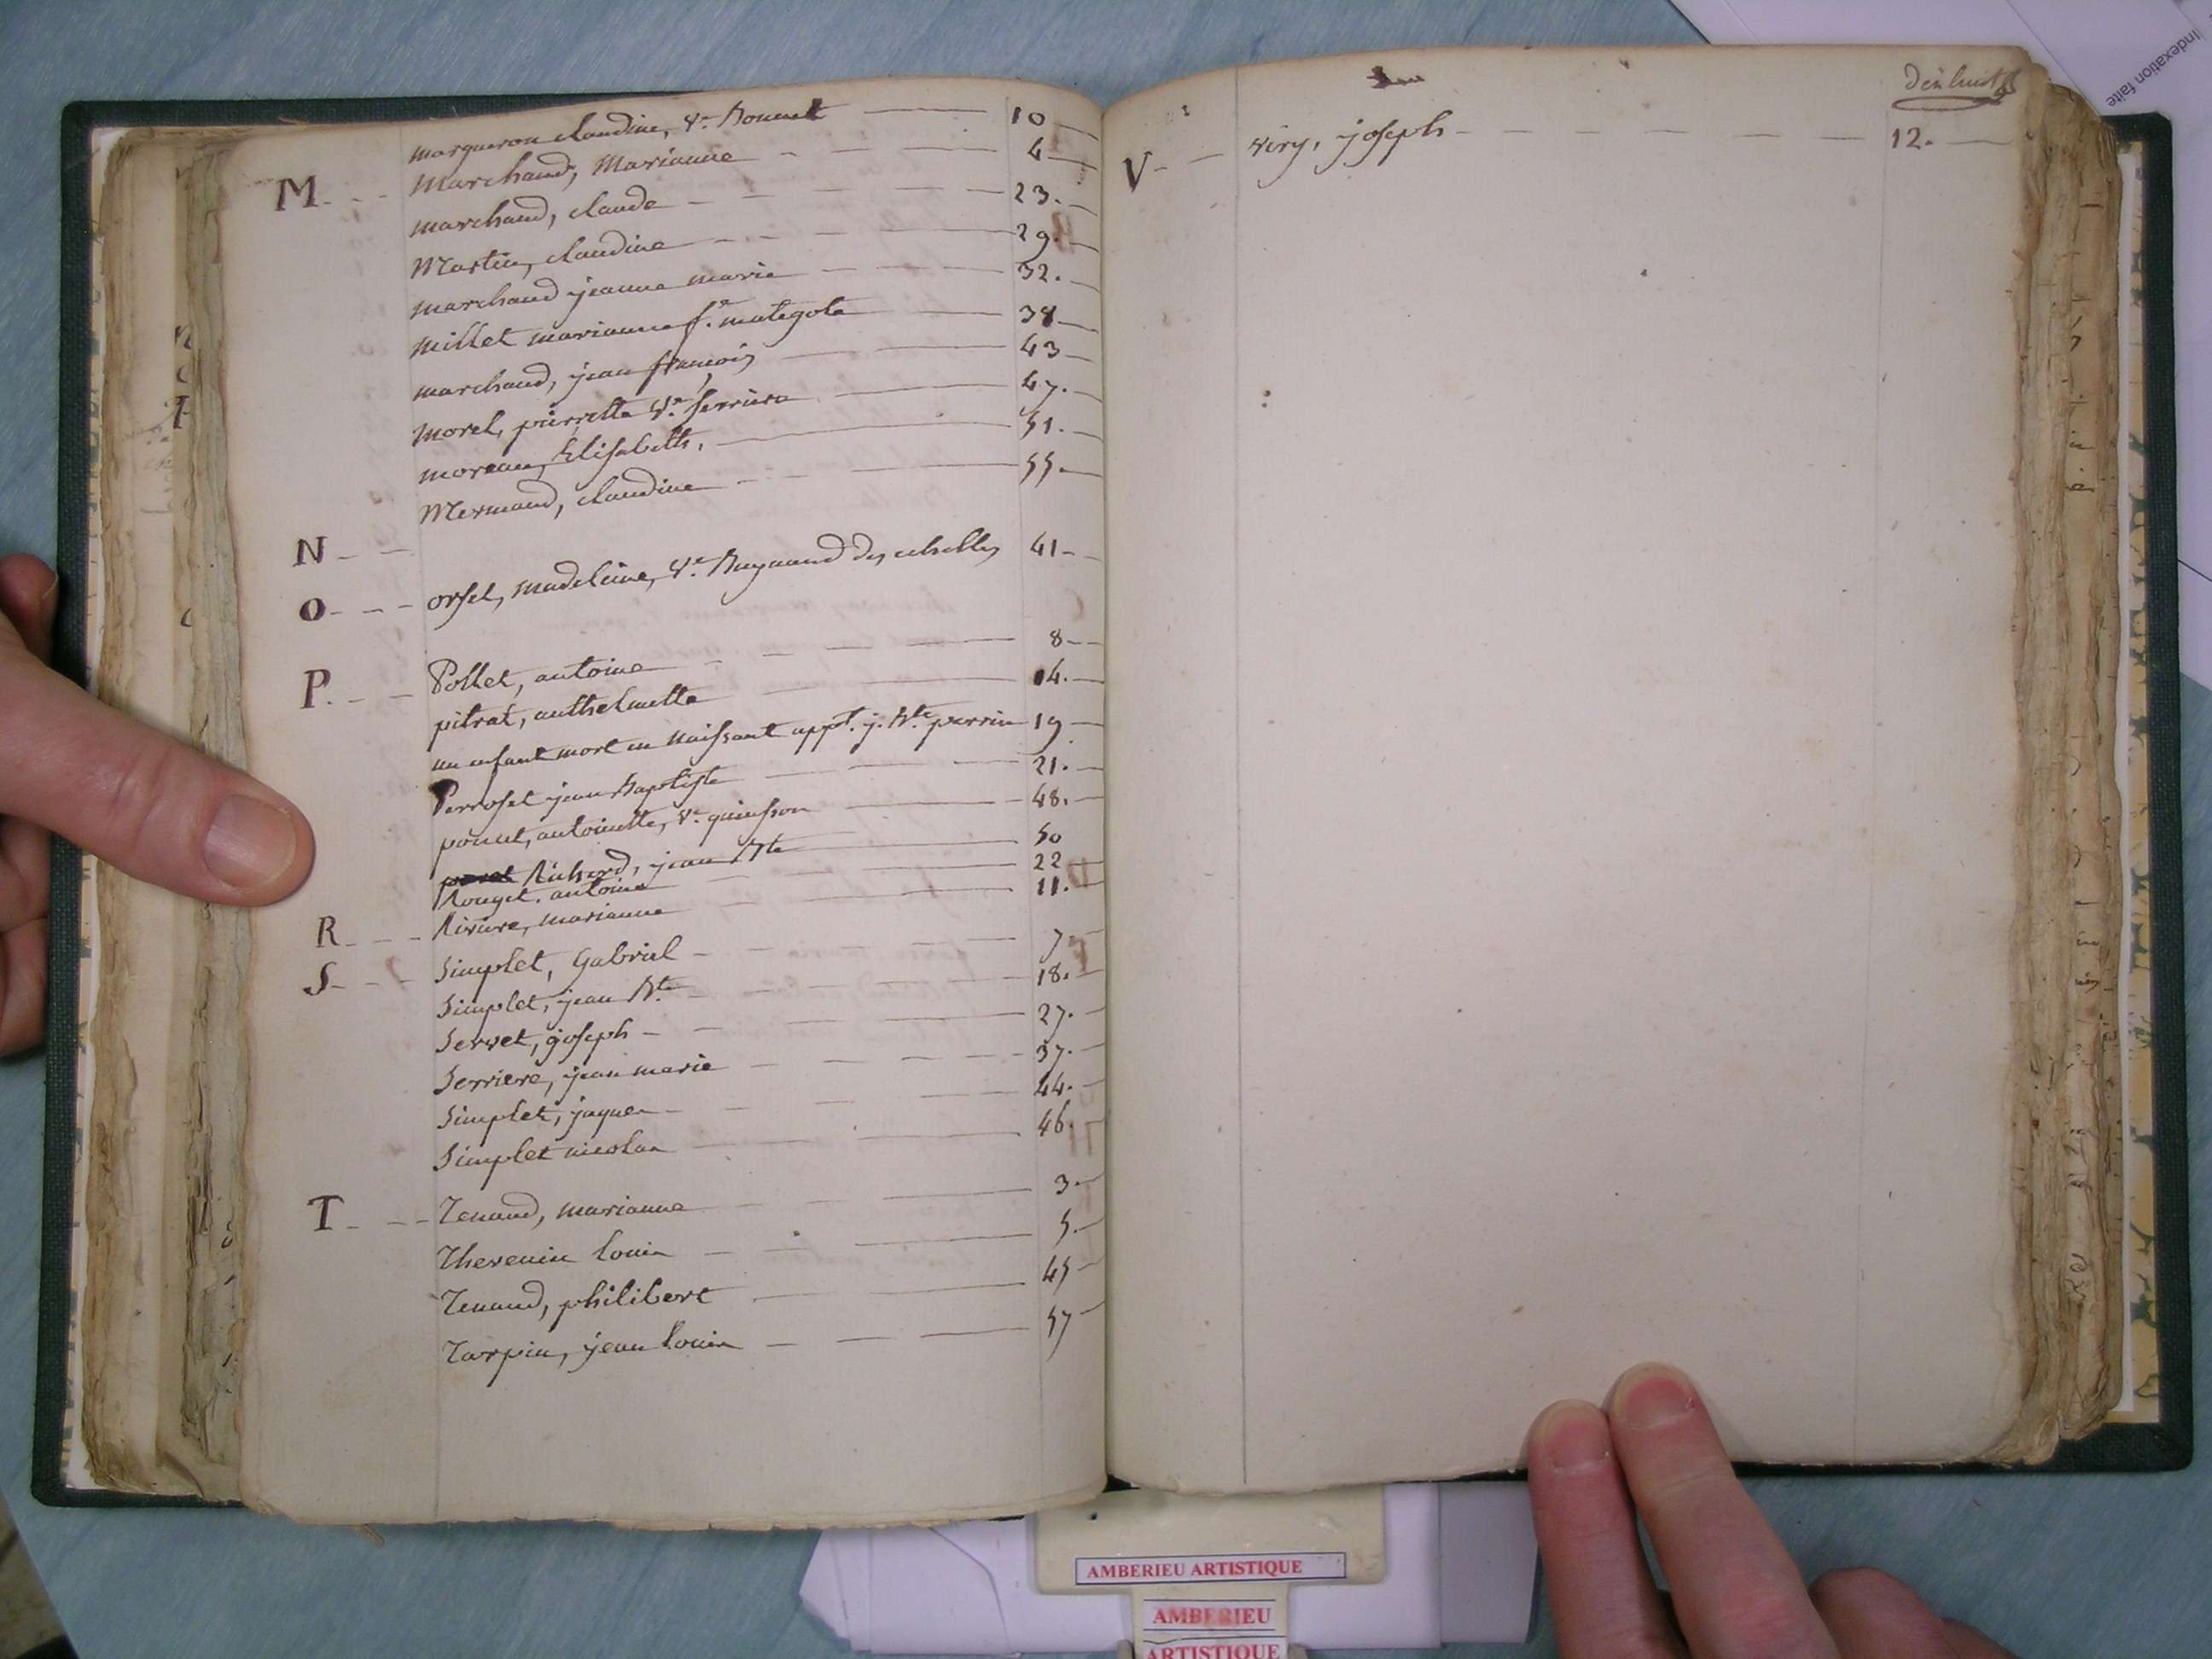 margueron claudine, Ve. Bonnet 10
M. Marchand, Marianne 4
marchand, claude 23.
Martin, claudine 29.
marchand jeanne marie 32.
millet marianne fe. mategote 38
marchand, jean françois 43
morel, pierrette Ve. serriere 47.
moreau, Elisabeth. 51.
Mermand, claudine 55.
N
O orset, madeleine, Ve. Raynaud des echelles 41
P. Pollet, antoine 8
pitrat, anthelmette 14.
un enfant mort en naissant appt. j. Bte perrin 19
Perroset jean Baptiste 21.
ponut, antoinette, Ve. 48.
Richerd, jean Bte 50
Rouget. antoine 22
R Riviere, marianne 11.
S Simplet, Gabriel 7
Simplet, jean Bte 18.
Servet, joseph 27.
Serriere, jean marie 37.
Simplet, jaques 44.
Simplet nicolas 46.
T Tenand, marianne 3.
Thevenin louis 5.
Tenand, philibert 45
Tarpin, jean louis 57
dix huit
V viry, joseph 12.
Indexation faite
AMBERIEU ARTISTIQUE
AMBERIEU
ARTISTIQUE